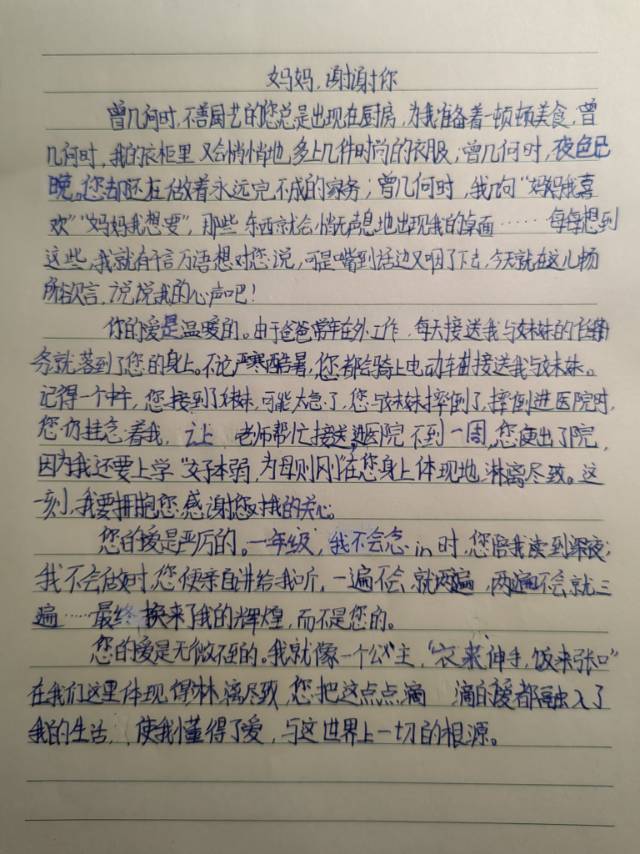 妈妈,谢谢你
曾几何时,不善厨艺的您总是出现在厨房,为我准备着一顿顿美食,曾
几何时,我的衣柜里又会悄悄地多上几件时尚的衣服;曾几何时,夜色已
晚。您却还在做着永远完不成的家务;曾几何时,我说句“妈妈我喜
欢”“妈妈我想要”,那些东西就会悄无声息地出现我的桌面……每每想到
这些,我就有千言万语想对您说,可是嘴到话边又咽了下去,今天就在这儿畅
所欲言,说说我的心声吧!
你的爱是温暖的。由于爸爸常年在外工作,每天接送我与妹妹的任
务就落到了您的身上。不论严寒酷暑,您都会骑上电动车接送我与妹妹。
记得一个中午,您接到了妹妹,可能太急了,您与妹妹摔倒了,摔倒进医院时,
您仍挂念着我,让老师帮忙接送,进医院不到一周,您便出了院,
因为我还要上学“女子本弱,为母则刚”在您身上体现地淋漓尽致。这
一刻,我要拥抱您,感谢您对我的关心。
您的爱是严厉的。一年级,我不会念in时,您陪我读到深夜;
我不会做时,您便亲自讲给我听,一遍不会,就两遍,两遍不会就三
遍……最终换来了我的辉煌,而不是您的。
您的爱是无微不至的。我就像一个公主,“衣来伸手,饭来张口”
在我们这里体现得淋漓尽致,您把这点点滴滴的爱都融入了
我的生活,使我懂得了爱,与这世界上一切的根源。